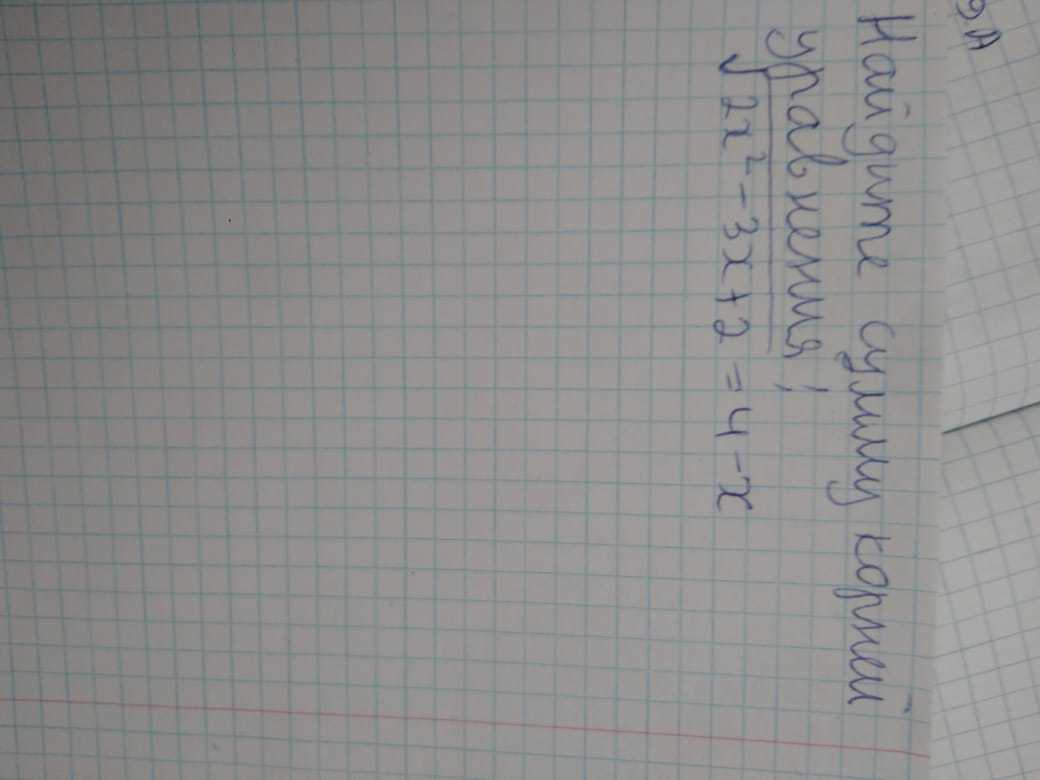 Найдите сумму корней
уравнения;
√2x² - 3x + 2 = 4 - x